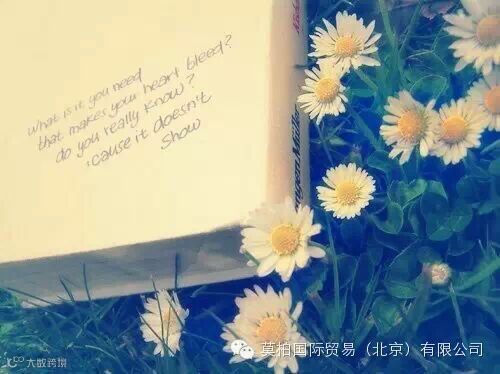 What is it you need
that makes your heart bleed?
do you really know?
'cause it doesn't
show
莫拍国际贸易（北京）有限公司
大数跨境